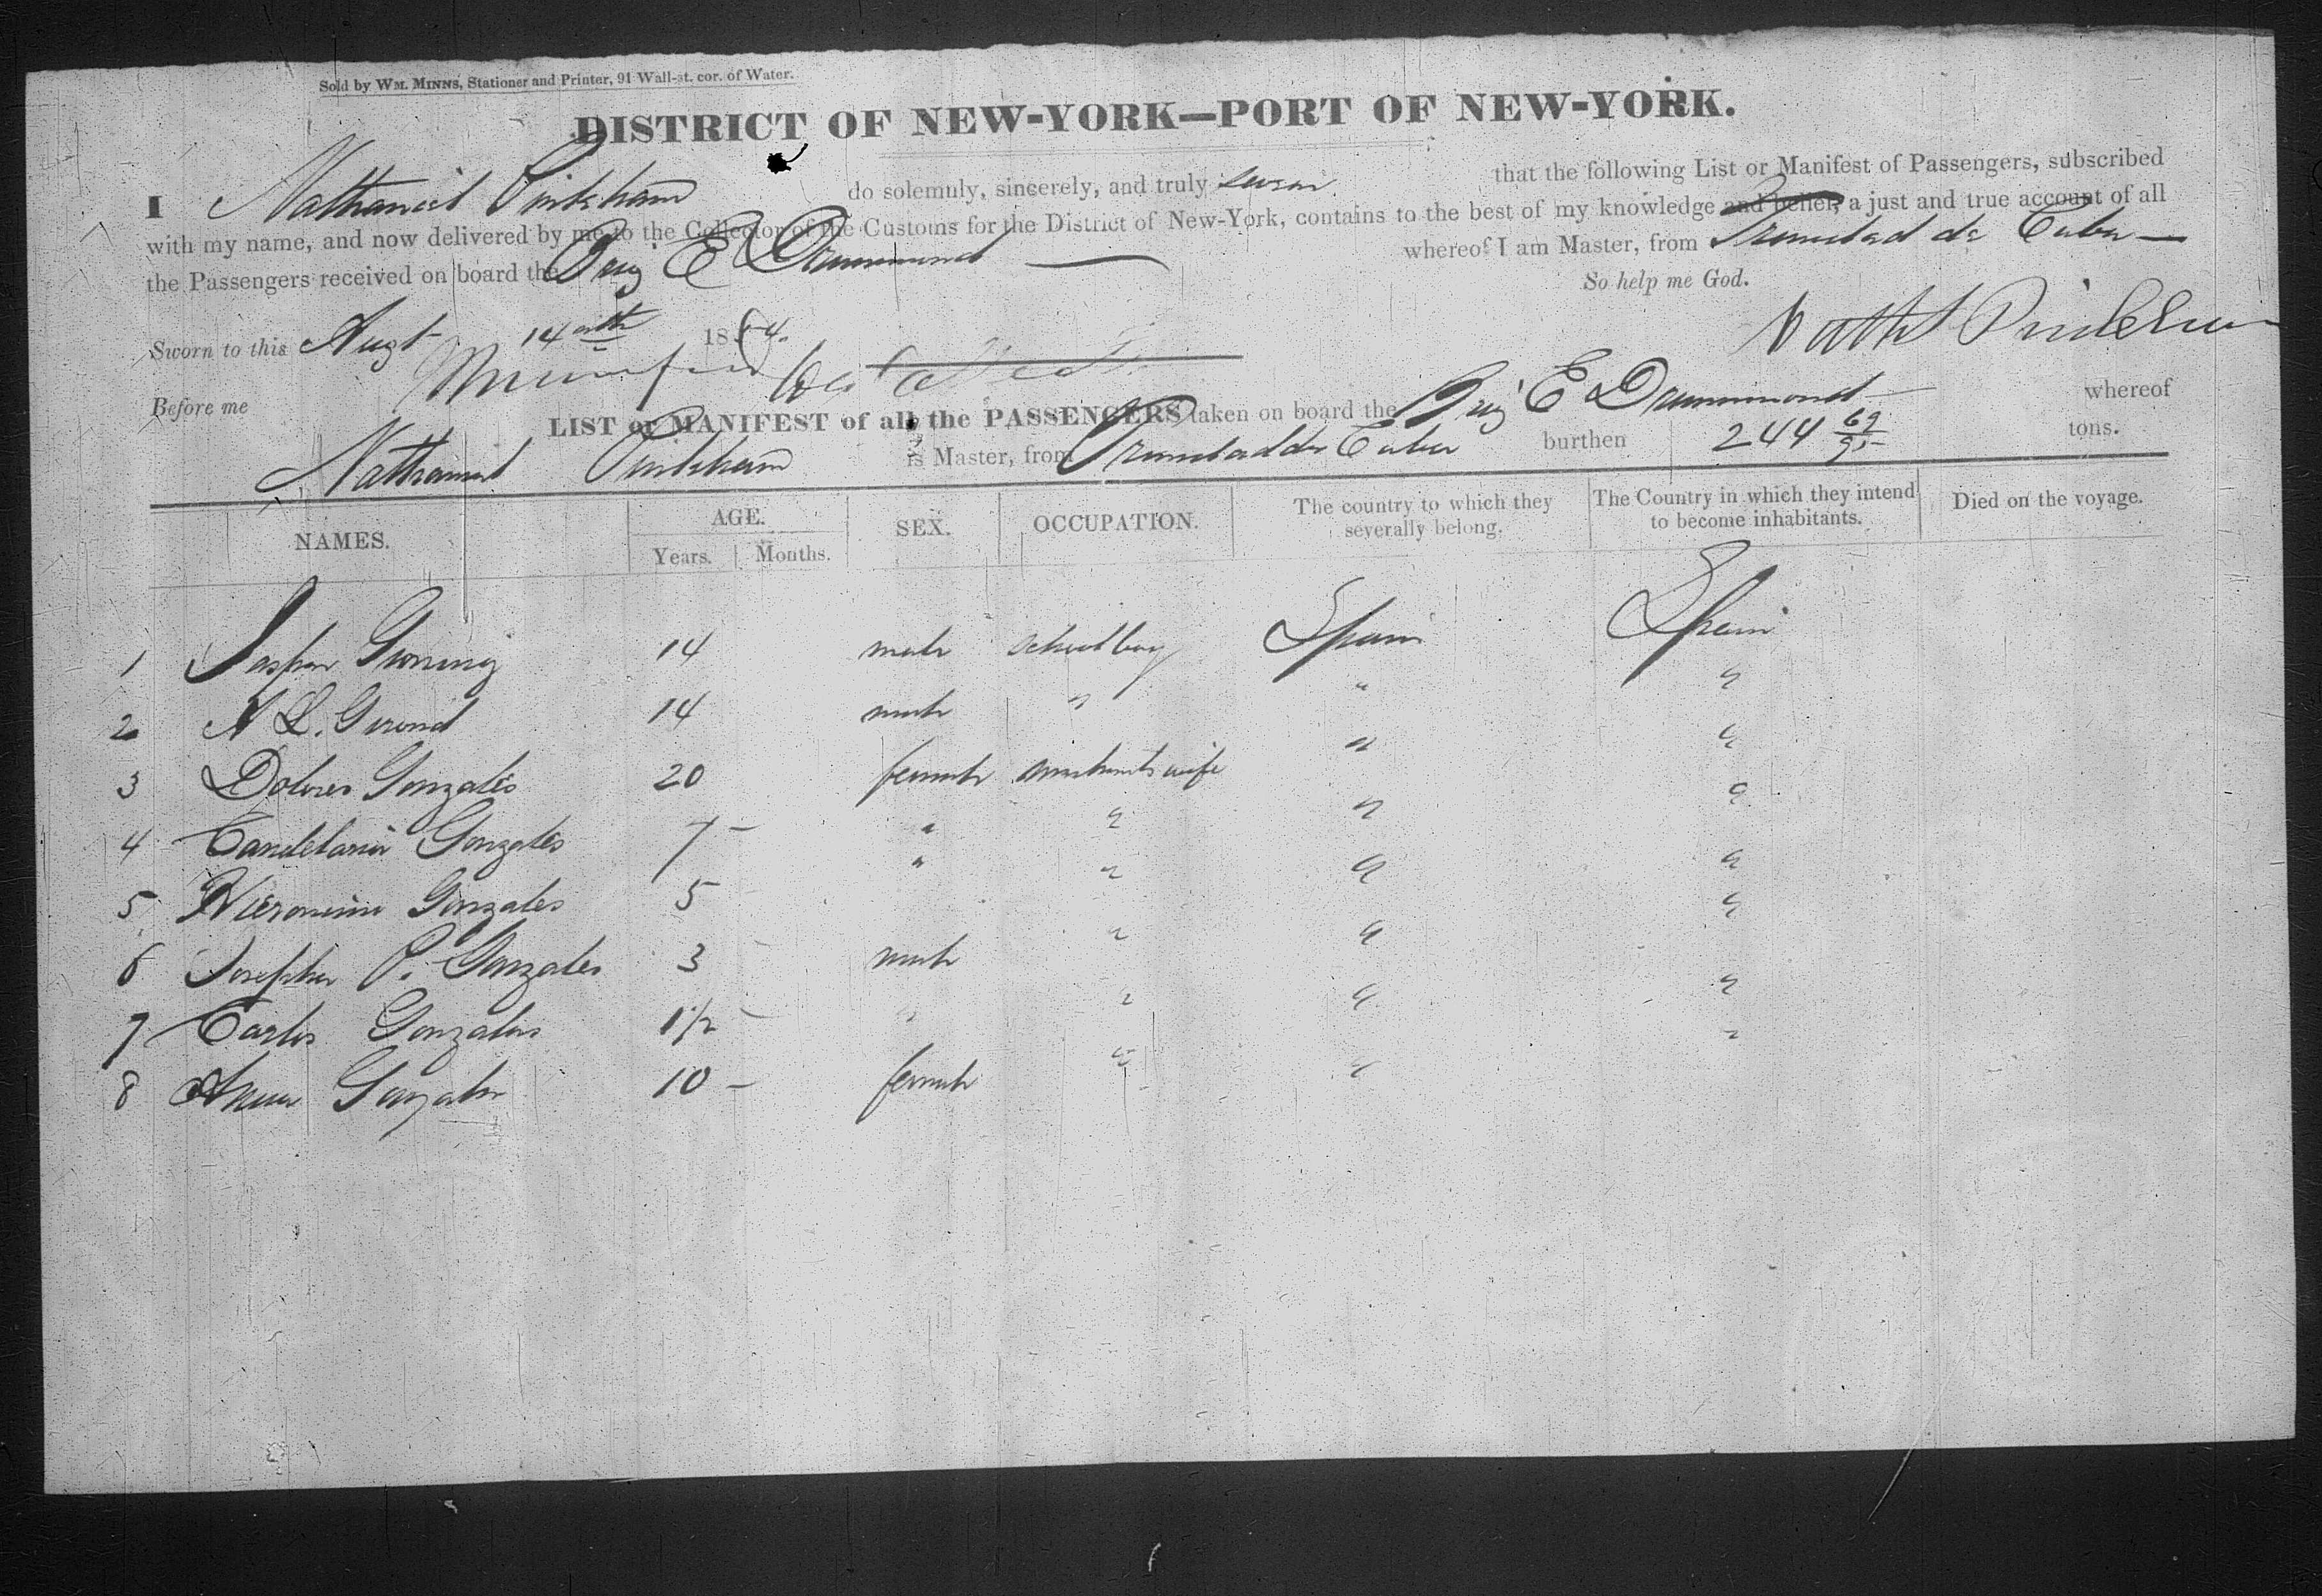 Sold by WM. MINNS, Stationer and Printer, 91 Wall-st. cor. of Water.
DISTRICT OF NEW-YORK—PORT OF NEW-YORK.
I Nathaniel Pinkham do solemnly, sincerely, and truly swear that the following List or Manifest of Passengers, subscribed
with my name, and now delivered by me to the Collector of the Customs for the District of New-York, contains to the best of my knowledge and belief, a just and true account of all
the Passengers received on board the Brig E Drummond whereof I am Master, from Trinidad de Cuba
So help me God.
Sworn to this Augt 14 18 4. Nathl Pinkham
Before me
LIST or MANIFEST of all the PASSENGERS taken on board the Brig E Drummond whereof
Nathaniel Pinkham is Master, from Trinidad de Cuba burthen 244 69/95 tons.
NAMES. AGE. SEX. OCCUPATION. The country to which they severally belong. The Country in which they intend to become inhabitants. Died on the voyage.
Years. Months.
1 14 male school boy Spain Spain
2 14 male " " "
3 Dolores Gonzales 20 female merchants wife " "
4 Candelaria Gonzales 7 – " " " "
5 Gonzales 5 " " " "
6 Josepha P. Gonzales 3 – male " " "
7 Carlos Gonzales 1 1/2 – " " " "
8 Gonzales 10 – female " " "